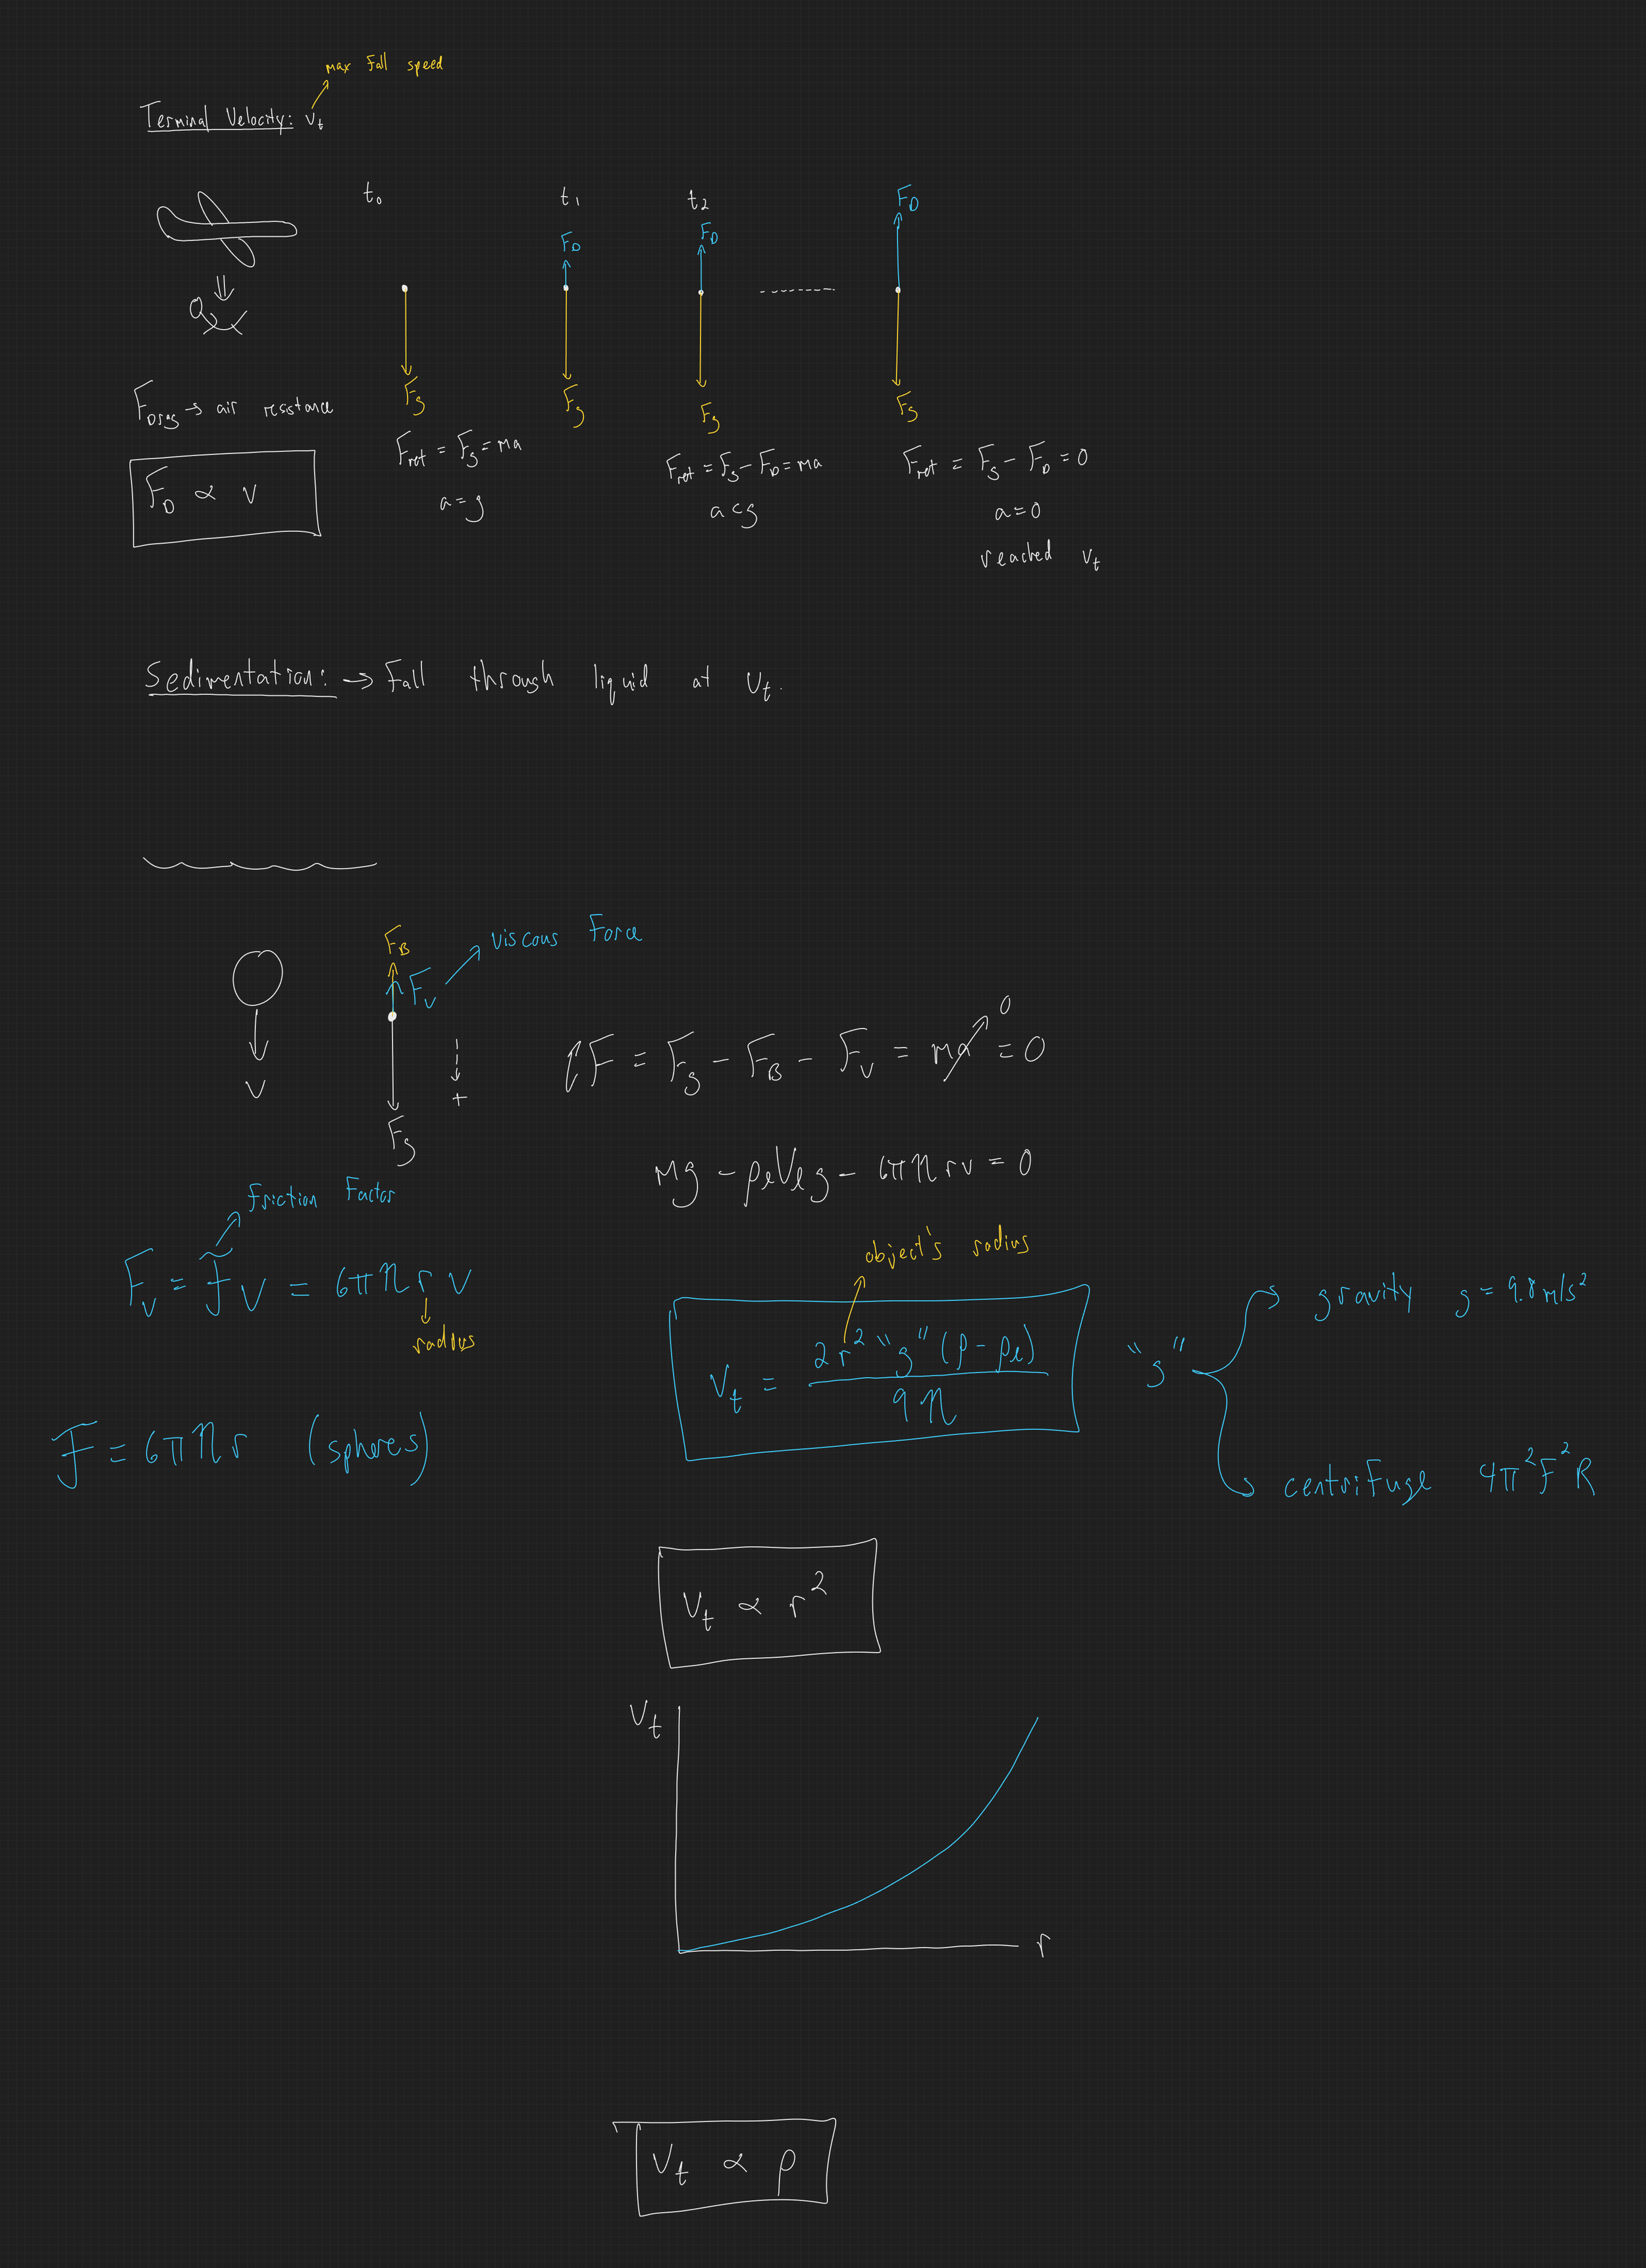 max fall speed
Terminal Velocity: v_t
t_0 t_1 t_2
F_D F_D F_D
F_g F_g F_g F_g
F_Drag → air resistance
F_net = F_g = ma
a = g
F_net = F_g - F_D = ma
a < g
F_net = F_g - F_D = 0
a = 0
reached v_t
F_D ∝ v
Sedimentation: → Fall through liquid at v_t.
F_B
F_v viscous force
v
+
F_g
F = F_g - F_B - F_v = ma = 0
0
mg - ρ_l V_l g - 6πηrv = 0
friction factor
F_v = f v = 6πηr v
radius
f = 6πηr (spheres)
object's radius
v_t = 2r² "g" (ρ - ρ_l) / 9η
"g"
gravity g = 9.8 m/s²
centrifuge 4π²f²R
v_t ∝ r²
v_t
r
v_t ∝ ρ